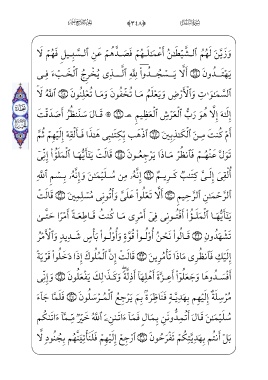 وَزَيَّنَ لَهُمُ ٱلشَّيْطَٰنُ أَعْمَٰلَهُمْ فَصَدَّهُمْ عَنِ ٱلسَّبِيلِ فَهُمْ لَا
يَهْتَدُونَ ۝ أَلَّا يَسْجُدُوا۟ لِلَّهِ ٱلَّذِى يُخْرِجُ ٱلْخَبْءَ فِى
ٱلسَّمَٰوَٰتِ وَٱلْأَرْضِ وَيَعْلَمُ مَا تُخْفُونَ وَمَا تُعْلِنُونَ ۝ ٱللَّهُ لَآ
إِلَٰهَ إِلَّا هُوَ رَبُّ ٱلْعَرْشِ ٱلْعَظِيمِ ۝ قَالَ سَنَنظُرُ أَصَدَقْتَ
أَمْ كُنتَ مِنَ ٱلْكَٰذِبِينَ ۝ ٱذْهَب بِّكِتَٰبِى هَٰذَا فَأَلْقِهْ إِلَيْهِمْ ثُمَّ
تَوَلَّ عَنْهُمْ فَٱنظُرْ مَاذَا يَرْجِعُونَ ۝ قَالَتْ يَٰٓأَيُّهَا ٱلْمَلَؤُا۟ إِنِّىٓ
أُلْقِىَ إِلَىَّ كِتَٰبٌ كَرِيمٌ ۝ إِنَّهُۥ مِن سُلَيْمَٰنَ وَإِنَّهُۥ بِسْمِ ٱللَّهِ
ٱلرَّحْمَٰنِ ٱلرَّحِيمِ ۝ أَلَّا تَعْلُوا۟ عَلَىَّ وَأْتُونِى مُسْلِمِينَ ۝ قَالَتْ
يَٰٓأَيُّهَا ٱلْمَلَؤُا۟ أَفْتُونِى فِىٓ أَمْرِى مَا كُنتُ قَاطِعَةً أَمْرًا حَتَّىٰ
تَشْهَدُونِ ۝ قَالُوا۟ نَحْنُ أُو۟لُوا۟ قُوَّةٍ وَأُو۟لُوا۟ بَأْسٍ شَدِيدٍ وَٱلْأَمْرُ
إِلَيْكِ فَٱنظُرِى مَاذَا تَأْمُرِينَ ۝ قَالَتْ إِنَّ ٱلْمُلُوكَ إِذَا دَخَلُوا۟ قَرْيَةً
أَفْسَدُوهَا وَجَعَلُوٓا۟ أَعِزَّةَ أَهْلِهَآ أَذِلَّةً وَكَذَٰلِكَ يَفْعَلُونَ ۝ وَإِنِّى
مُرْسِلَةٌ إِلَيْهِم بِهَدِيَّةٍ فَنَاظِرَةٌۢ بِمَ يَرْجِعُ ٱلْمُرْسَلُونَ ۝ فَلَمَّا جَآءَ
سُلَيْمَٰنَ قَالَ أَتُمِدُّونَنِ بِمَالٍ فَمَآ ءَاتَىٰنِۦَ ٱللَّهُ خَيْرٌ مِّمَّآ ءَاتَىٰكُم
بَلْ أَنتُم بِهَدِيَّتِكُمْ تَفْرَحُونَ ۝ ٱرْجِعْ إِلَيْهِمْ فَلَنَأْتِيَنَّهُم بِجُنُودٍ لَّا